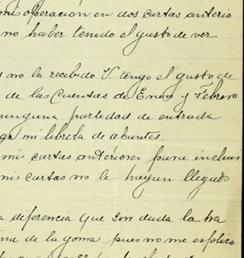 mi operación en dos cartas anterio
no haber tenido el gusto de ver
no la recibido V. tengo el gusto de
de las Cuentas de Enero y Febrero
ninguna partedad de entrada
mi libreta de apuntes.
mis cartas anteriores para inclui
mis cartas no le hayan llegado
a deferencia que sin duda la ha
de la goma pues no me esplico